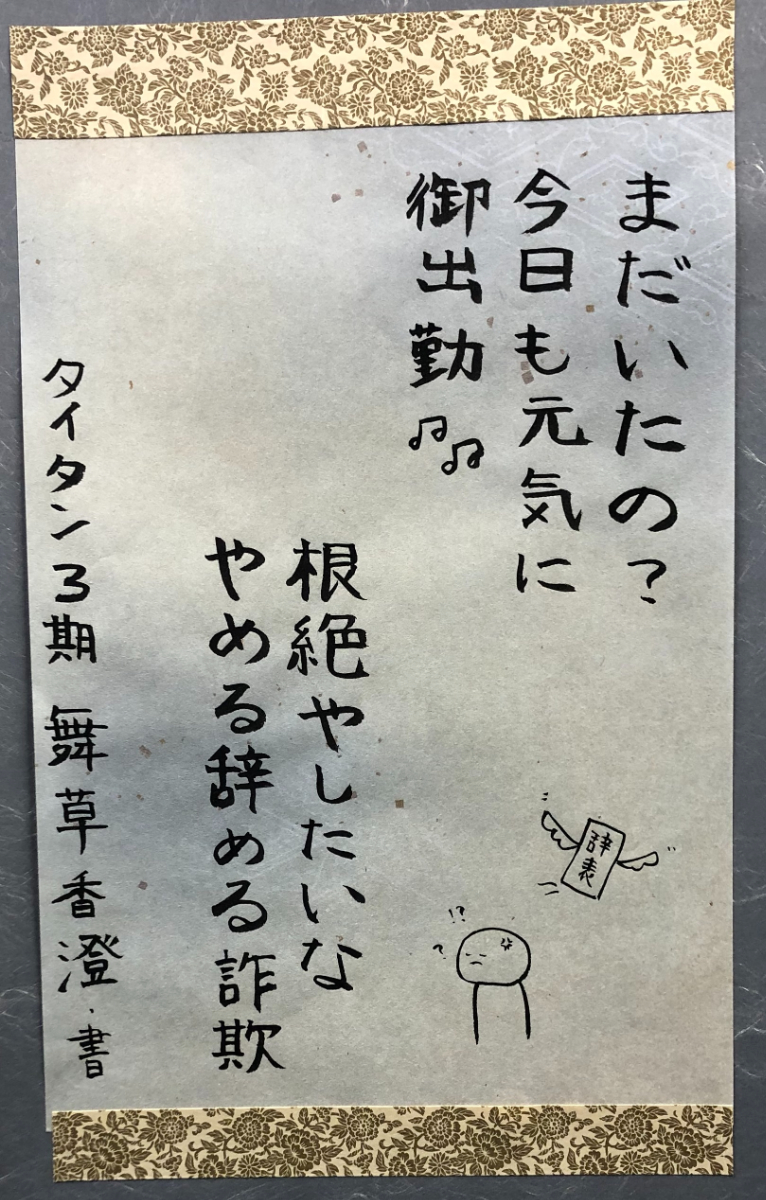 まだいたの?
今日も元気に
御出勤♫♫
根絶やしたいな
やめる辞める詐欺
タイタン3期 舞草香澄・書
辞表
!?
?